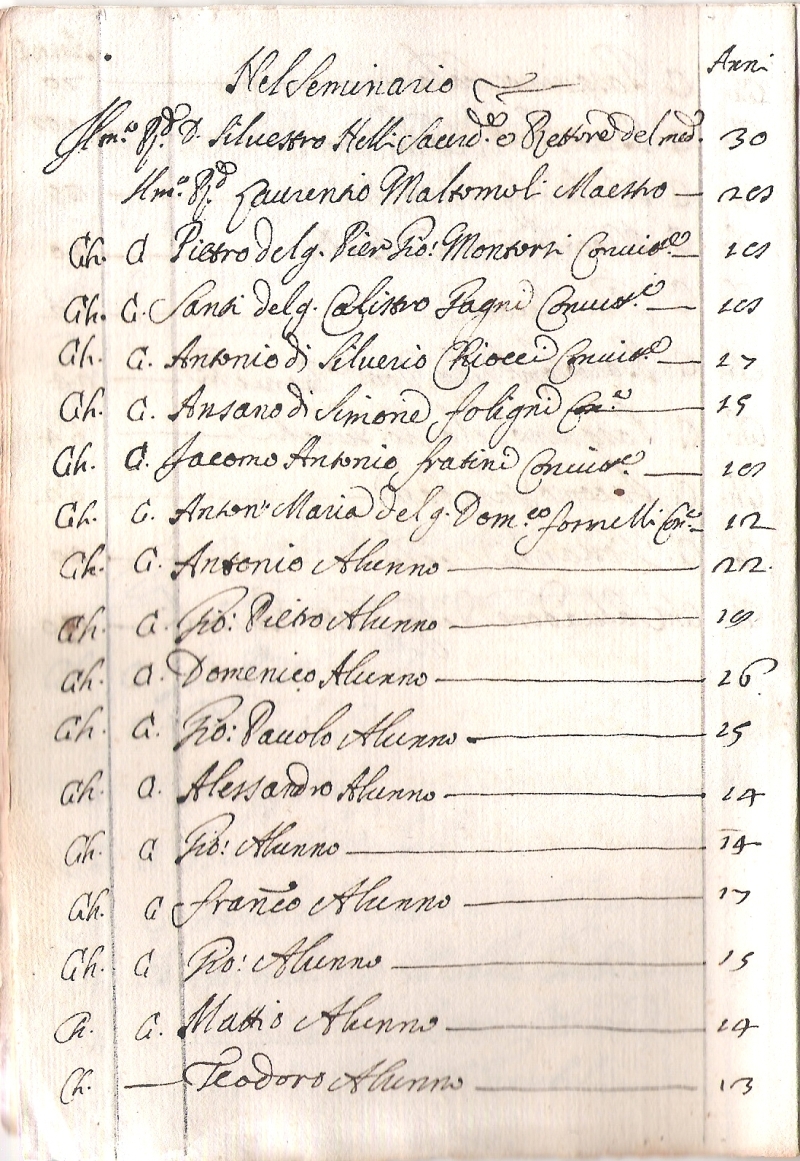 Anni
Nel Seminario
Ill.mo R.d D. Silvestro Nelli Sacerd.e e Rettore del med. 30
Ill.mo R.d Laurentio Maltomoli Maestro — 28
Ch. C Pietro del q. Pier Gio: Montorsi Convitt.e — 18
Ch. C. Santi del q. Calistro Fagni Convitt.e — 18
Ch. C. Antonio di Silverio Chiocci Convitt.e — 17
Ch. C. Ansano di Simone foligni Con.e — 15
Ch. C. Jacomo Antonio fratini Convitt.e — 18
Ch. C. Anton Maria del q. Dom.co fornelli Con.e — 12
Ch. C. Antonio Alunno — 22.
Ch. C. Gio: Pietro Alunno — 19
Ch. C. Domenico Alunno — 26
Ch. C. Gio: Pauolo Alunno — 25
Ch. C. Alessandro Alunno — 14
Ch. C Gio: Alunno — 14
Ch. C franco Alunno — 17
Ch. C Gio: Alunno — 15
Ch. C. Mattio Alunno — 14
Ch. — Teodoro Alunno — 13